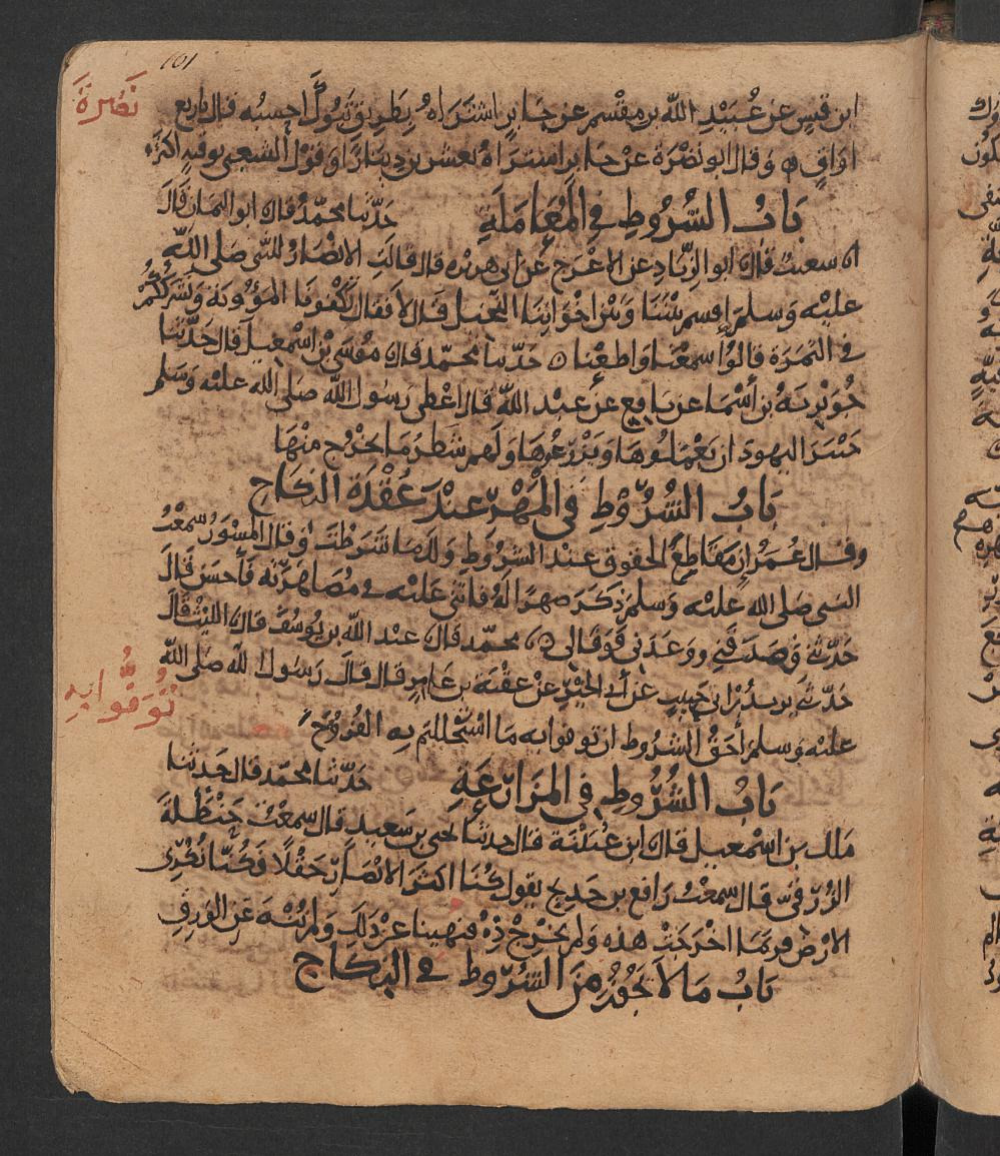 101
نضرة
ابن قيس عن عُبَيْدِ الله بن مقْسم عن جابر اشتَرَاهُ بِطَرِيق تَبُوكَ احسِبُه قال باربع
اواقٍ ه وقال ابو نَضْرَة عن جابر اشتراهُ بعشرين دينارًا وقوْلُ الشعبي بوقيةٍ اكثر
بَابُ الشُّرُوطِ في المُعَامَلَةِ حَدّثنا محمّدٌ قال نا ابو اليمان قَالَ
انا شعيبٌ قال نا ابو الزِّنَادِ عن الاعْرَج عن ابي هريرة قال قالتِ الانصَارُ للنبي صَلى اللّه
عليْه وَسلم اقسم بَيْننَا وبَيْن اخْوَانِنَا النَّخيل قَال لا فقال تَكْفُونَا المؤُونَة ونَشْرَككُمْ
في الثمَرَة قالوُا سمعْنا واطعْنا ه حَدّثنا محمّد قال نا مُوسَى بْن اسْمعيل قال حَدّثنا
جُوَيْرِيَةُ بن أَسْمَا عن نافِع عن عبْد اللّه قال اعْطى رَسُول اللّه صَلى الله عليْه وَسلم
خَيْبَرَ اليهودَ ان يَعْمَلُوهَا ويَزْرعُوهَا وَلهم شَطرُ مَا يخْرُج منْهَا
بَابُ الشُّرُوْطِ في المَهْرِ عِنْدَ عُقْدَة النِّكَاح
وقال عُمَرُ ان مَقَاطِعَ الحقوق عنْد الشروطِ ولك مَا شَرَطْتَ وقال المِسْوَرُ سمعْتُ
النبي صَلى الله عليْه وَسلم ذكَرَ صهرًا لَهُ فاثنَى عَليْه في مُصَاهَرَته فأحسَن قَالَ
حَدّثني وَصَدَقَنِي ووعَدَني فَوَفَا لي ه محمّد قال نا عبْد اللّه بن يُوسُفَ قال نا الليْثُ قَالَ
حَدّثني يزيد بْن ابي حَبِيبٍ عن أبي الخَيْرِ عن عقْبَة بن عَامِرٍ قال قالَ رَسُولُ الله صَلى اللّه
تُوَفُّوا به
عليْه وَسلم أحَقُّ الشرُوط ان توفوا به مَا اسْتَحْللتم بِه الفُرُوْجَ
بَابُ الشُّرُوطِ في المزَارَعَةِ حَدّثنا محمّد قال حَدّثنا
مَلك بن اسْمعيل قال نا ابن عُيَيْنَة قال حدثنا يحيى بن سَعيد قال سمعْتُ حَنْظَلَةَ
الزُّرَقيّ قال سمعْتُ رَافع بن خَديجٍ يقول كُنّا اكثَر الانْصَارِ حَقْلًا فَكُنّا نُكْرِي
الارْض فربمَا اخرَجَتْ هذه ولم تخْرِجْ ذِهْ فنهينا عنْ ذلكَ ولم نُنْهَ عَن الوَرِقِ
بَابُ مَا لَا يَجُوْزُ مِنَ الشُّرُوطِ في النِّكَاح